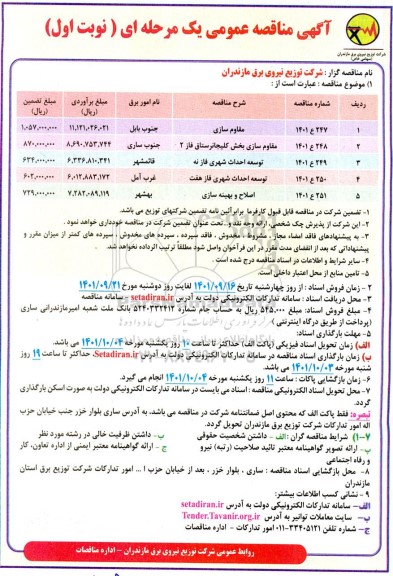 آگهی مناقصه عمومی یک مرحله ای ( نوبت اول)
شرکت توزیع نیروی برق مازندران
نام مناقصه گزار : شرکت توزیع نیروی برق مازندران
۱) موضوع مناقصه : عبارت است از :
ردیف شماره مناقصه شرح مناقصه نام امور برق مبلغ برآوردی (ریال) مبلغ تضمین (ریال)
۱ ۲۴۷ ع ۱۴۰۱ مقاوم سازی جنوب بابل ۱۱,۱۳۱,۰۲۶,۰۳۱ ۱,۰۵۷,۰۰۰,۰۰۰
۲ ۲۴۸ ع ۱۴۰۱ مقاوم سازی بخش کلیجانرستاق فاز ۲ جنوب ساری ۸,۶۹۰,۷۵۳,۷۴۴ ۸۷۰,۰۰۰,۰۰۰
۳ ۲۴۹ ع ۱۴۰۱ توسعه احداث شهری فاز نه قائمشهر ۶,۳۳۶,۸۱۰,۳۴۱ ۶۳۴,۰۰۰,۰۰۰
۴ ۲۵۰ ع ۱۴۰۱ توسعه احداث شهری فاز هفت غرب آمل ۶,۰۱۲,۸۸۳,۱۷۲ ۶۰۲,۰۰۰,۰۰۰
۵ ۲۵۱ ع ۱۴۰۱ اصلاح و بهینه سازی بهشهر ۷,۲۸۲,۰۸۹,۱۱۹ ۷۲۹,۰۰۰,۰۰۰
۱- تضمین شرکت در مناقصه قابل قبول کارفرما برابر آئین نامه تضمین شرکتهای توزیع می باشد.
۲- این شرکت از پذیرش چک شخصی، ارائه وجه نقد و... تحت عنوان تضمین شرکت در مناقصه خودداری خواهد نمود.
۳- به پیشنهادهای فاقد امضاء مجاز، مشروط ، مخدوش ، فاقد سپرده ، سپرده های مخدوش ، سپرده های کمتر از میزان مقرر و
پیشنهاداتی که بعد از انقضای مدت مقرر در این فراخوان واصل شود مطلقاً ترتیب اثرداده نخواهد شد.
۴- سایر شرایط و اطلاعات در اسناد مناقصه درج شده است .
۵- تامین منابع از محل اعتبار داخلی است.
۲- زمان فروش اسناد : از روز چهارشنبه تاریخ ۱۴۰۱/۰۹/۱۶ لغایت روز دوشنبه مورخ ۱۴۰۱/۰۹/۲۱
۳- محل دریافت اسناد : سامانه تدارکات الکترونیکی دولت به آدرس setadiran.ir سامانه مناقصه
۴- مبلغ فروش اسناد: مبلغ ۵۴۵,۰۰۰ ریال به حساب جام شماره ۵۲۴۰۳۳۲۴۱۲ بانک ملت شعبه امیرمازندرانی ساری
(پرداخت از طریق درگاه اینترنتی )
۵- مهلت بارگذاری اسناد:
الف) زمان تحویل اسناد فیزیکی (پاکت الف) حداکثر تا ساعت ۱۰ روز یکشنبه مورخه ۱۴۰۱/۱۰/۰۴ می باشد.
ب) زمان بارگذاری اسناد مناقصه در سامانه تدارکات الکترونیکی دولت به آدرس Setadiran.ir، حداکثر تا ساعت ۱۹ روز
شنبه مورخه ۱۴۰۱/۱۰/۰۳ می باشد.
۶- زمان بازگشایی پاکات : ساعت ۱۱ روز یکشنبه مورخه ۱۴۰۱/۱۰/۰۴ انجام می گیرد.
۷- محل تحویل اسناد الکترونیکی مناقصه : اسناد می بایست در سامانه تدارکات الکترونیکی دولت به صورت اسکن بارگذاری
گردد.
تبصره: فقط پاکت الف که محتوی اصل ضمانتنامه شرکت در مناقصه می باشد، به آدرس ساری بلوار خزر جنب خیابان حزب
اله امور تدارکات شرکت توزیع برق مازندران تحویل گردد.
۷-۱) شرایط مناقصه گران : الف - داشتن شخصیت حقوقی ب- داشتن ظرفیت خالی در رشته مورد نظر
پ- ارائه تصویر گواهینامه معتبر تائید صلاحیت (رتبه) نیرو ج - ارائه گواهینامه معتبر ایمنی از اداره تعاون، کار
و رفاه اجتماعی
۸- محل بازگشایی اسناد مناقصه : ساری ، بلوار خزر ، بعد از خیابان حزب ا ... امور تدارکات شرکت توزیع برق استان
مازندران
۹ - نشانی کسب اطلاعات بیشتر:
الف- سامانه تدارکات الکترونیکی دولت به آدرس setadiran.ir
ب- سایت معاملات توانیر به آدرس Tender.Tavanir.org.ir
ج- شماره تلفن ۳۳۴۰۵۱۲۱-۰۱۱ امور تدارکات - اداره مناقصات
روابط عمومی شرکت توزیع نیروی برق مازندران - اداره مناقصات